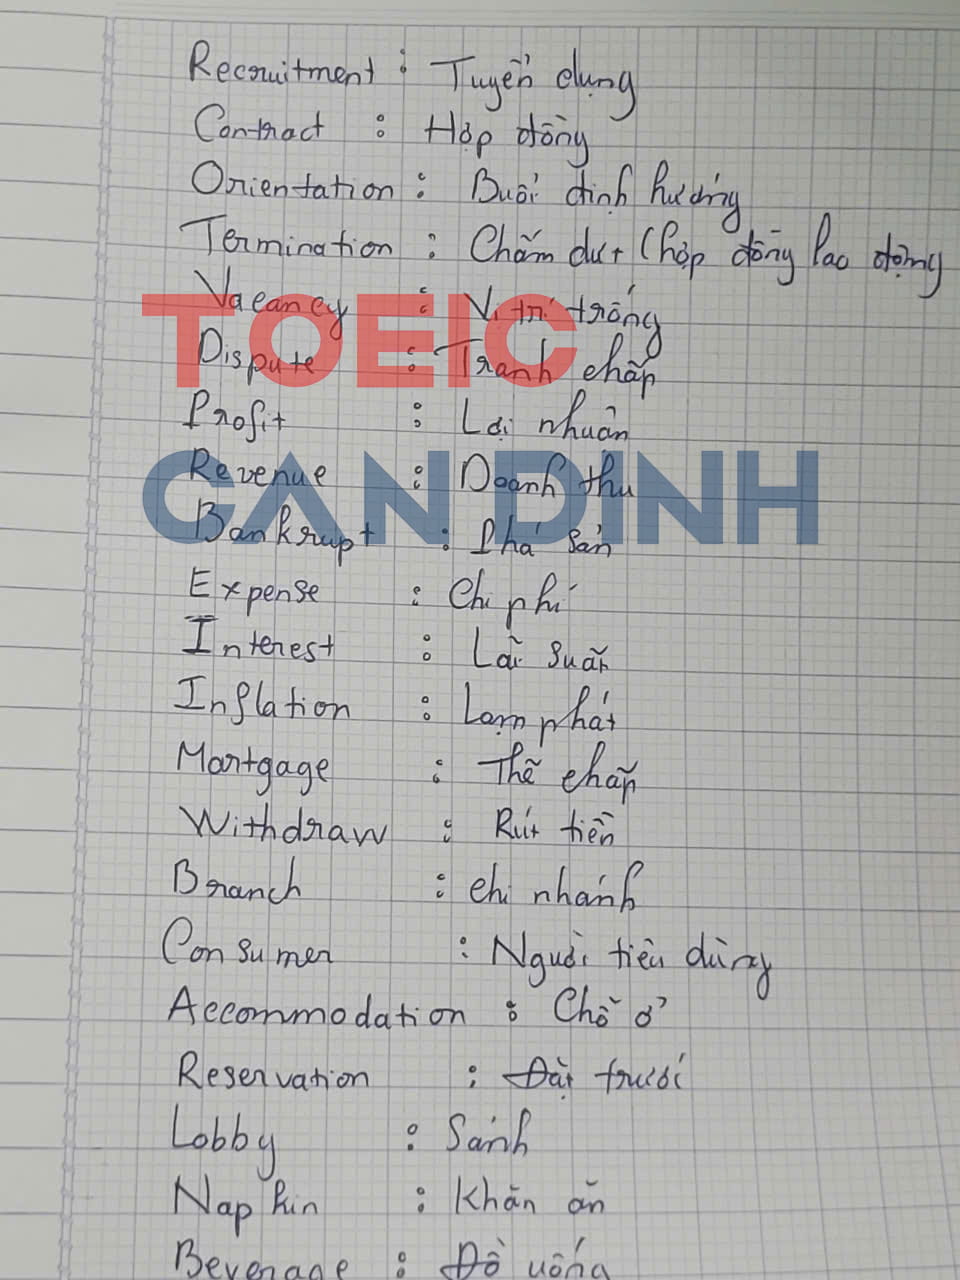 Recruitment : Tuyển dụng
Contract : Hợp đồng
Orientation : Buổi định hướng
Termination : Chấm dứt (hợp đồng lao động
Vacancy : Vị trí trống
TOEIC
Dispute : Tranh chấp
Profit : Lợi nhuận
Revenue : Doanh thu
CAN DINH
Bankrupt : Phá sản
Expense : Chi phí
Interest : Lãi suất
Inflation : Lạm phát
Martgage : Thế chấp
Withdraw : Rút tiền
Branch : chi nhánh
Consumer : Người tiêu dùng
Accommodation : Chỗ ở
Reservation : Đặt trước
Lobby : Sảnh
Napkin : Khăn ăn
Beverage : Đồ uống